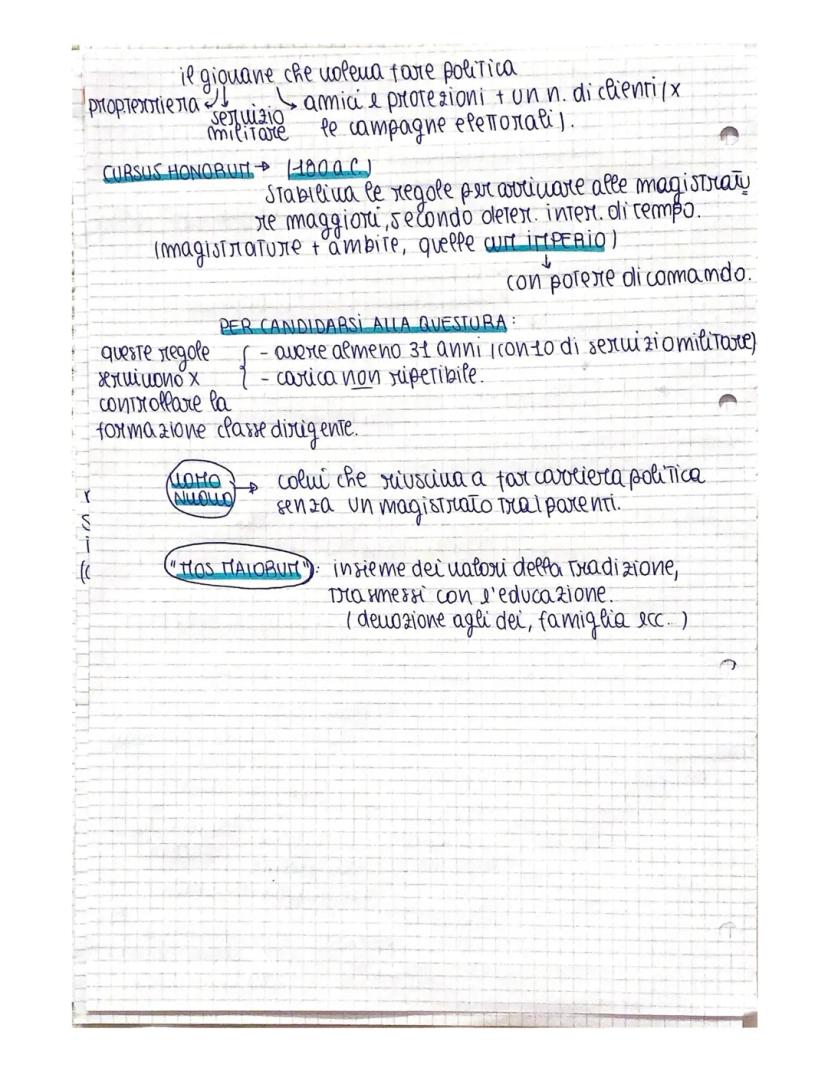 il giovane che voleva fare politica
propterriera servizio militare amici e protezioni + un n. di clienti (x
le campagne elettorali).
CURSUS HONORUM → (180 a.C.)
Stabiliva le regole per arrivare alle magistratu
re maggiori, secondo deter. inter. di tempo.
(magistrature + ambite, quelle CUM IMPERIO)
↓
con potere di comando.
PER CANDIDARSI ALLA QUESTURA:
queste regole { - avere almeno 31 anni (con 10 di servizio militare)
servivono x { - carica non ripetibile.
controllare la
formazione classe dirigente.
UOMO NUOVO → colui che riusciva a far carriera politica
senza un magistrato tra i parenti.
"MOS MAIORUM": insieme dei valori della tradizione,
trasmessi con l'educazione.
(devozione agli dei, famiglia ecc.)